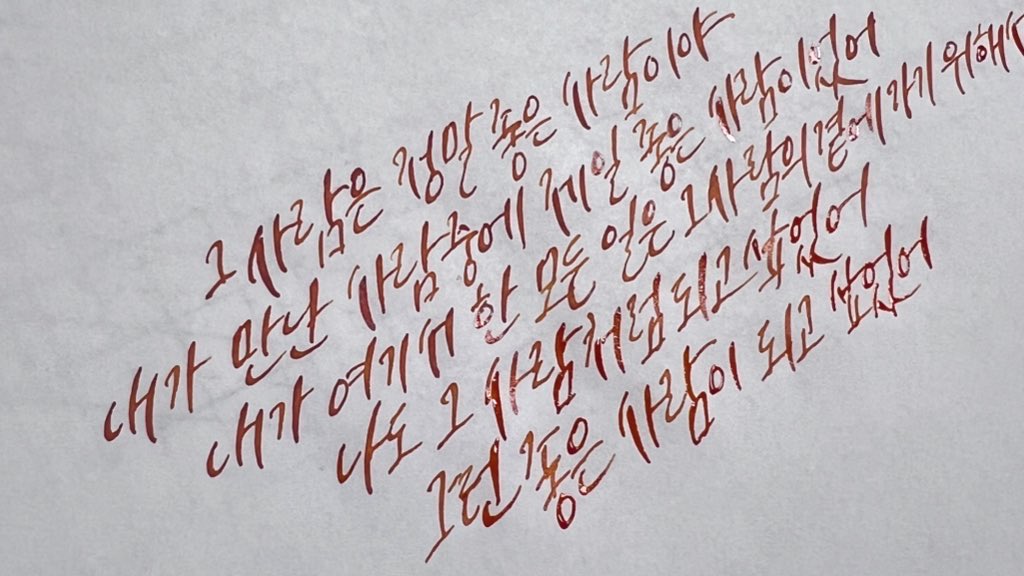 그 사람은 정말 좋은 사람이야
내가 만난 사람중에 제일 좋은 사람이었어
내가 여기서 한 모든 일은 그 사람의 곁에 가기 위해
나도 그 사람처럼 되고 싶었어
그런 좋은 사람이 되고 싶었어